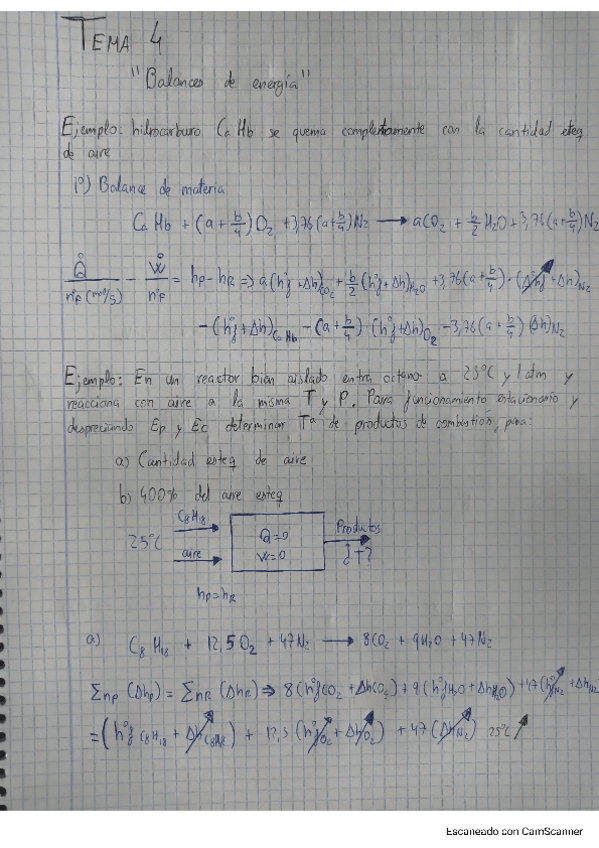 TEMA 4
"Balances de energía"
Ejemplo: hidrocarburo Ca Hb se quema completamente con la cantidad esteq
de aire
1º) Balance de materia
Ca Hb + (a + b/4) O2 + 3,76 (a + b/4) N2 → a CO2 + b/2 H2O + 3,76 (a + b/4) N2
Q̇/ṅF (mol/s) − Ẇ/ṅF = hP − hR ⇒ a (h°f + Δh)CO2 + b/2 (h°f + Δh)H2O + 3,76 (a + b/4) · (h°f + Δh)N2
− (h°f + Δh)CaHb − (a + b/4) · (h°f + Δh)O2 − 3,76 (a + b/4) (Δh)N2
Ejemplo: En un reactor bien aislado entra octano a 25°C y 1 atm y
reacciona con aire a la misma T y P. Para funcionamiento estacionario y
despreciando Ep y Ec determinar Tª de productos de combustión, para:
a) Cantidad esteq de aire
b) 400% del aire esteq
C8H18
25°C
aire
Q=0
W=0
Productos
¿T?
hP=hR
a) C8 H18 + 12,5 O2 + 47 N2 → 8 CO2 + 9 H2O + 47 N2
Σ nP (ΔhP) = Σ nR (ΔhR) ⇒ 8 (h°f CO2 + Δh CO2) + 9 (h°f H2O + Δh H2O) + 47 (h°f N2 + Δh N2
= (h°f C8H18 + Δh C8H8) + 12,5 (h°f O2 + Δh O2) + 47 (Δh N2) 25°C
Escaneado con CamScanner